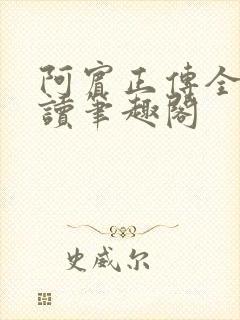 阿賓正傳全
讀筆趣閣
史威尔